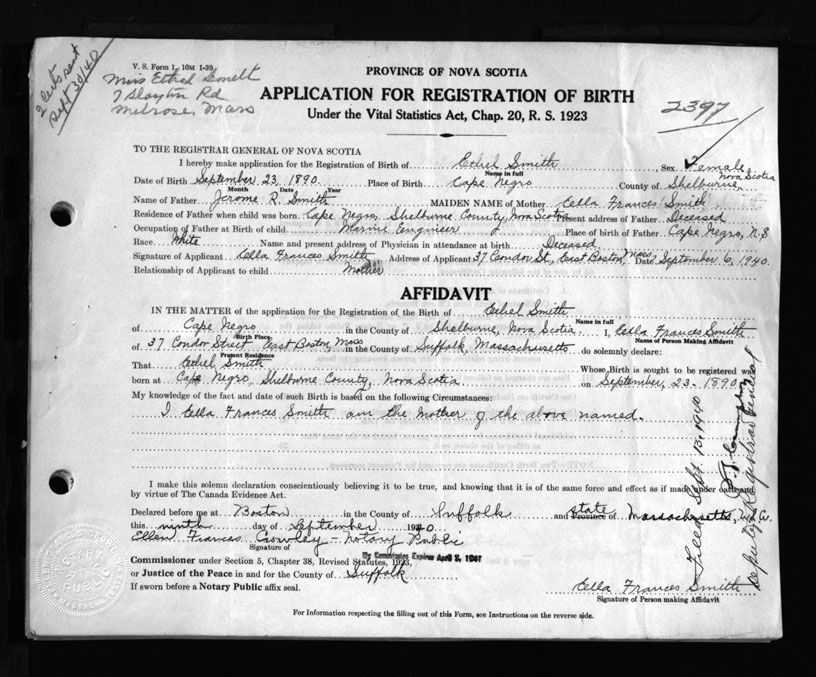 2 Certs sent
Sept 30/40
V. S. Form 1, 10M 1-39
Miss Ethel
7 Slayton Rd
Melrose, Mass
PROVINCE OF NOVA SCOTIA
APPLICATION FOR REGISTRATION OF BIRTH
Under the Vital Statistics Act, Chap. 20, R. S. 1923
2397
TO THE REGISTRAR GENERAL OF NOVA SCOTIA
I hereby make application for the Registration of Birth of Ethel Smith Sex Female
Name in full
Date of Birth September 23, 1890. Place of Birth Cape Negro County of Shelburne, Nova Scotia
Month Date Year
Name of Father Jerome R. Smith MAIDEN NAME of Mother Cella Frances Smith
Residence of Father when child was born Cape Negro, Shelburne County, Nova Scotia Present address of Father Deceased
Occupation of Father at Birth of child Marine Engineer Place of birth of Father Cape Negro, N.S
Race White Name and present address of Physician in attendance at birth Deceased
Signature of Applicant Cella Frances Smith Address of Applicant 37 Condor St, East Boston, Mass Date September 6, 1940.
Relationship of Applicant to child Mother
AFFIDAVIT
IN THE MATTER of the application for the Registration of the Birth of Ethel Smith
Name in full
of Cape Negro in the County of Shelburne, Nova Scotia I, Cella Frances Smith
Birth Place Name of Person Making Affidavit
of 37 Condor Street East Boston, Mass in the County of Suffolk, Massachusetts do solemnly declare:
Present Residence
That Ethel Smith Whose Birth is sought to be registered was
born at Cape Negro, Shelburne County, Nova Scotia on September 23 - 1890
My knowledge of the fact and date of such Birth is based on the following Circumstances:
I Cella Frances Smith am the Mother of the above named.
I make this solemn declaration conscientiously believing it to be true, and knowing that it is of the same force and effect as if made under oath and
by virtue of The Canada Evidence Act.
Declared before me at Boston in the County of Suffolk and State Province of Massachusetts,
this ninth day of September 1940
Ellen Frances Crowley - Notary Public
Signature of
My Commission Expires April 3, 1947
Commissioner under Section 5, Chapter 38, Revised Statutes, 1923,
or Justice of the Peace in and for the County of Suffolk
If sworn before a Notary Public affix seal.
Cella Frances Smith
Signature of Person making Affidavit
For Information respecting the filling out of this Form, see Instructions on the reverse side.
Filed Sept. 13, 1940
Deputy Registrar General
NOTARY
PUBLIC